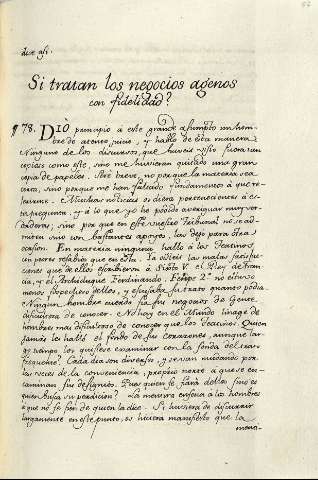 dize assi.
Si tratan los negocios agenos
con fidelidad?
¶ 78. Dio principio a este grande assumpto un hom-
bre do ateneo, pues, y hallo de esta manera.
Ninguno de los discursos, que haveis visto fuera tan
como este, sino me huvieran quitado una gran
copia de papeles. Seré breve, no porque la materia sea
corta, sino porque me han faltado fundamentos à que re-
Muchas noticias os diera pertenecientes à es-
ta pregunta, y à lo que yo he podido averiguar muy ver-
daderas; sino por que en este nuestro Tribunal no se ad-
miten sino con bastantes apoyos, las dejo para otra
ocasion. En materia ninguna hallo à los Teatinos
un peores resabios que en esta. Ya visteis las malas satisfac-
ciones que de ellos escribieron à Sixto V. el Rey de Fran-
cia, y el Archiduque Ferdinando. Felipe 2º no estuvo
menos sospechoso dellos, y escusaba su trato quanto podia
Ningun hombre cuerdo fia sus negocios de Gente
dificultosa de conocer. No hay en el Mundo linage de
hombres mas dificultoso de conocer que los Teatinos. Quien
jamàs les hallò el fondo de sus corazones, aunque lar-
gos tiempos los quisiese examinar con la sonda del tra-
to frequente? Cada dia son diversos, y se van mudando por
las veces de la conveniencia, proprio norte à que se en-
caminan sus designios. Pues quien se farà dellos sino es
quien busca su perdicion? La menor enseña à los hombres
a que no se fien de quien la dice. Si huviera de discurrir
largamente en este punto, os huviera manifiesto que la